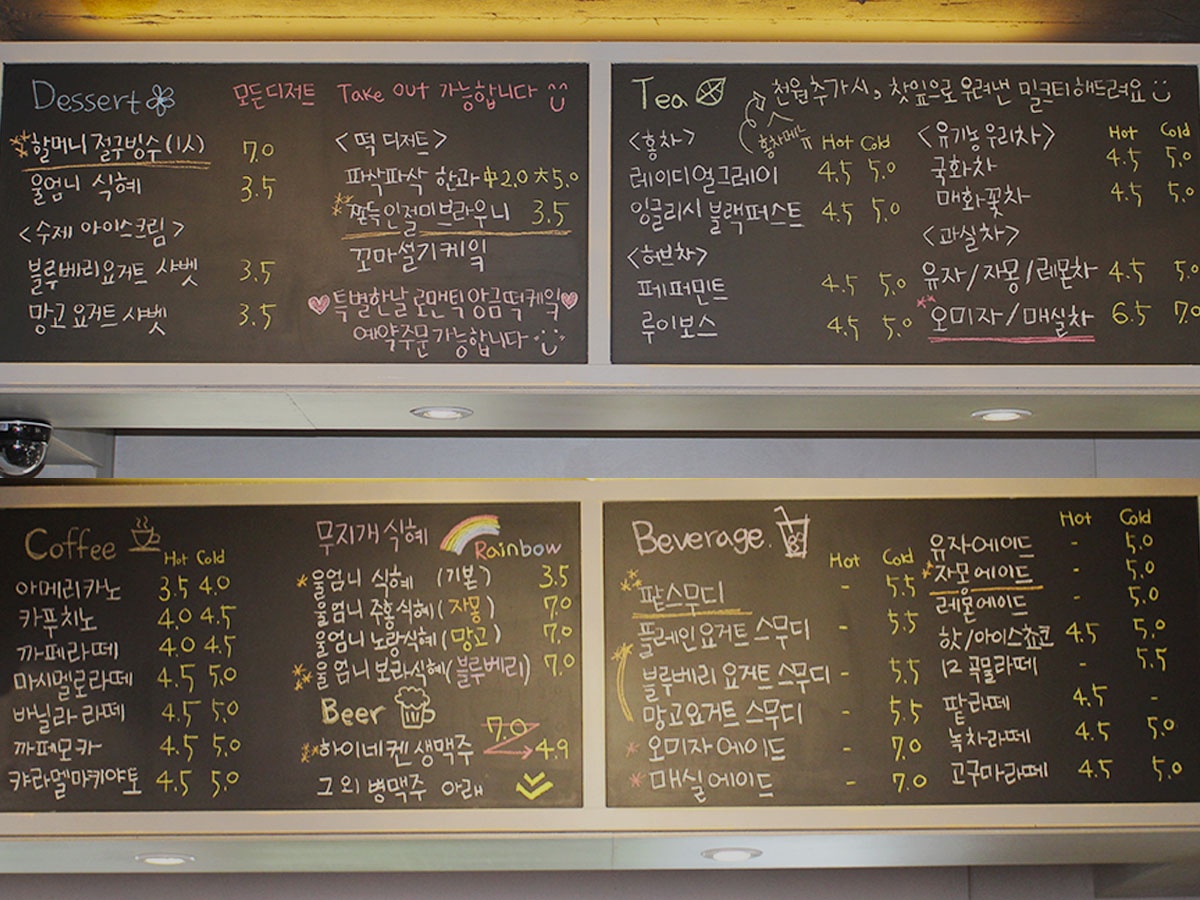 Dessert
모든디저트 Take out 가능합니다
할머니 절구빙수(1人) 7.0
울엄니 식혜 3.5
<수제 아이스크림>
블루베리요거트 샤벳 3.5
망고 요거트 샤벳 3.5
<떡 디저트>
파삭파삭 한과 中2.0 大5.0
쫀득인절미브라우니 3.5
꼬마설기케익
특별한날 로맨틱 앙금떡케익
예약주문 가능합니다
Tea
천원추가시, 찻잎으로 우려낸 밀크티해드려요
홍차메뉴
<홍차> Hot Cold
레이디얼그레이 4.5 5.0
잉글리시 블랙퍼스트 4.5 5.0
<허브차>
페퍼민트 4.5 5.0
루이보스 4.5 5.0
<유기농 우리차> Hot Cold
국화차 4.5 5.0
매화꽃차 4.5 5.0
<과실차>
유자/자몽/레몬차 4.5 5.0
오미자/매실차 6.5 7.0
Coffee
Hot Cold
아메리카노 3.5 4.0
카푸치노 4.0 4.5
까페라떼 4.0 4.5
마시멜로라떼 4.5 5.0
바닐라 라떼 4.5 5.0
까페모카 4.5 5.0
캬라멜마키야토 4.5 5.0
무지개 식혜 Rainbow
울엄니 식혜 (기본) 3.5
울엄니 주홍식혜 (자몽) 7.0
울엄니 노랑식혜 (망고) 7.0
울엄니 보라식혜 (블루베리) 7.0
Beer
하이네켄 생맥주 7.0 4.9
그외 병맥주 아래
Beverage.
Hot Cold
팥스무디 - 5.5
플레인요거트 스무디 - 5.5
블루베리 요거트 스무디 - 5.5
망고요거트 스무디 - 5.5
오미자에이드 - 7.0
매실에이드 - 7.0
Hot Cold
유자에이드 - 5.0
자몽에이드 - 5.0
레몬에이드 - 5.0
핫/아이스쵸코 4.5 5.0
12곡물라떼 - 5.5
팥라떼 4.5 -
녹차라떼 4.5 5.0
고구마라떼 4.5 5.0